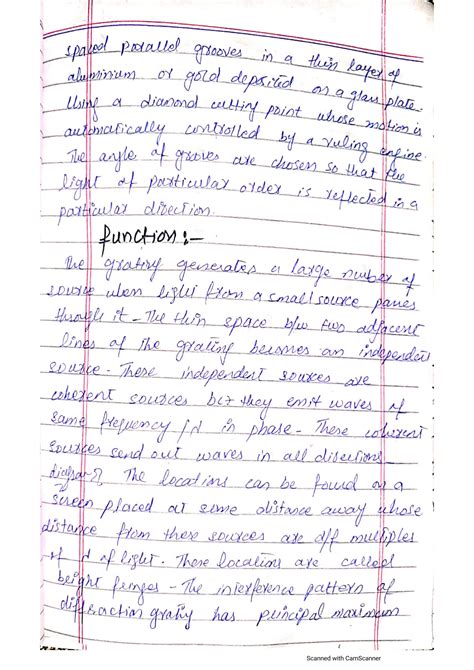 spaced parallel grooves in a thin layer of
aluminium or gold deposited on a glass plate.
Using a diamond cutting point whose motion is
automatically controlled by a ruling engine.
The angle of grooves are chosen so that the
light of particular order is reflected in a
particular direction.
function:-
The grating generates a large number of
source when light from a small source passes
through it - The thin space b/w two adjacent
lines of the grating becomes an independent
source - These independent sources are
coherent sources bcz they emit waves of
same frequency / λ in phase - These coherent
sources send out waves in all directions
diagram The locations can be found on a
screen placed at some distance away whose
distance from these sources are d/f multiples
of λ of light. These locations are called
bright fringes - The interference pattern of
diffraction gratig has principal maximum
Scanned with CamScanner